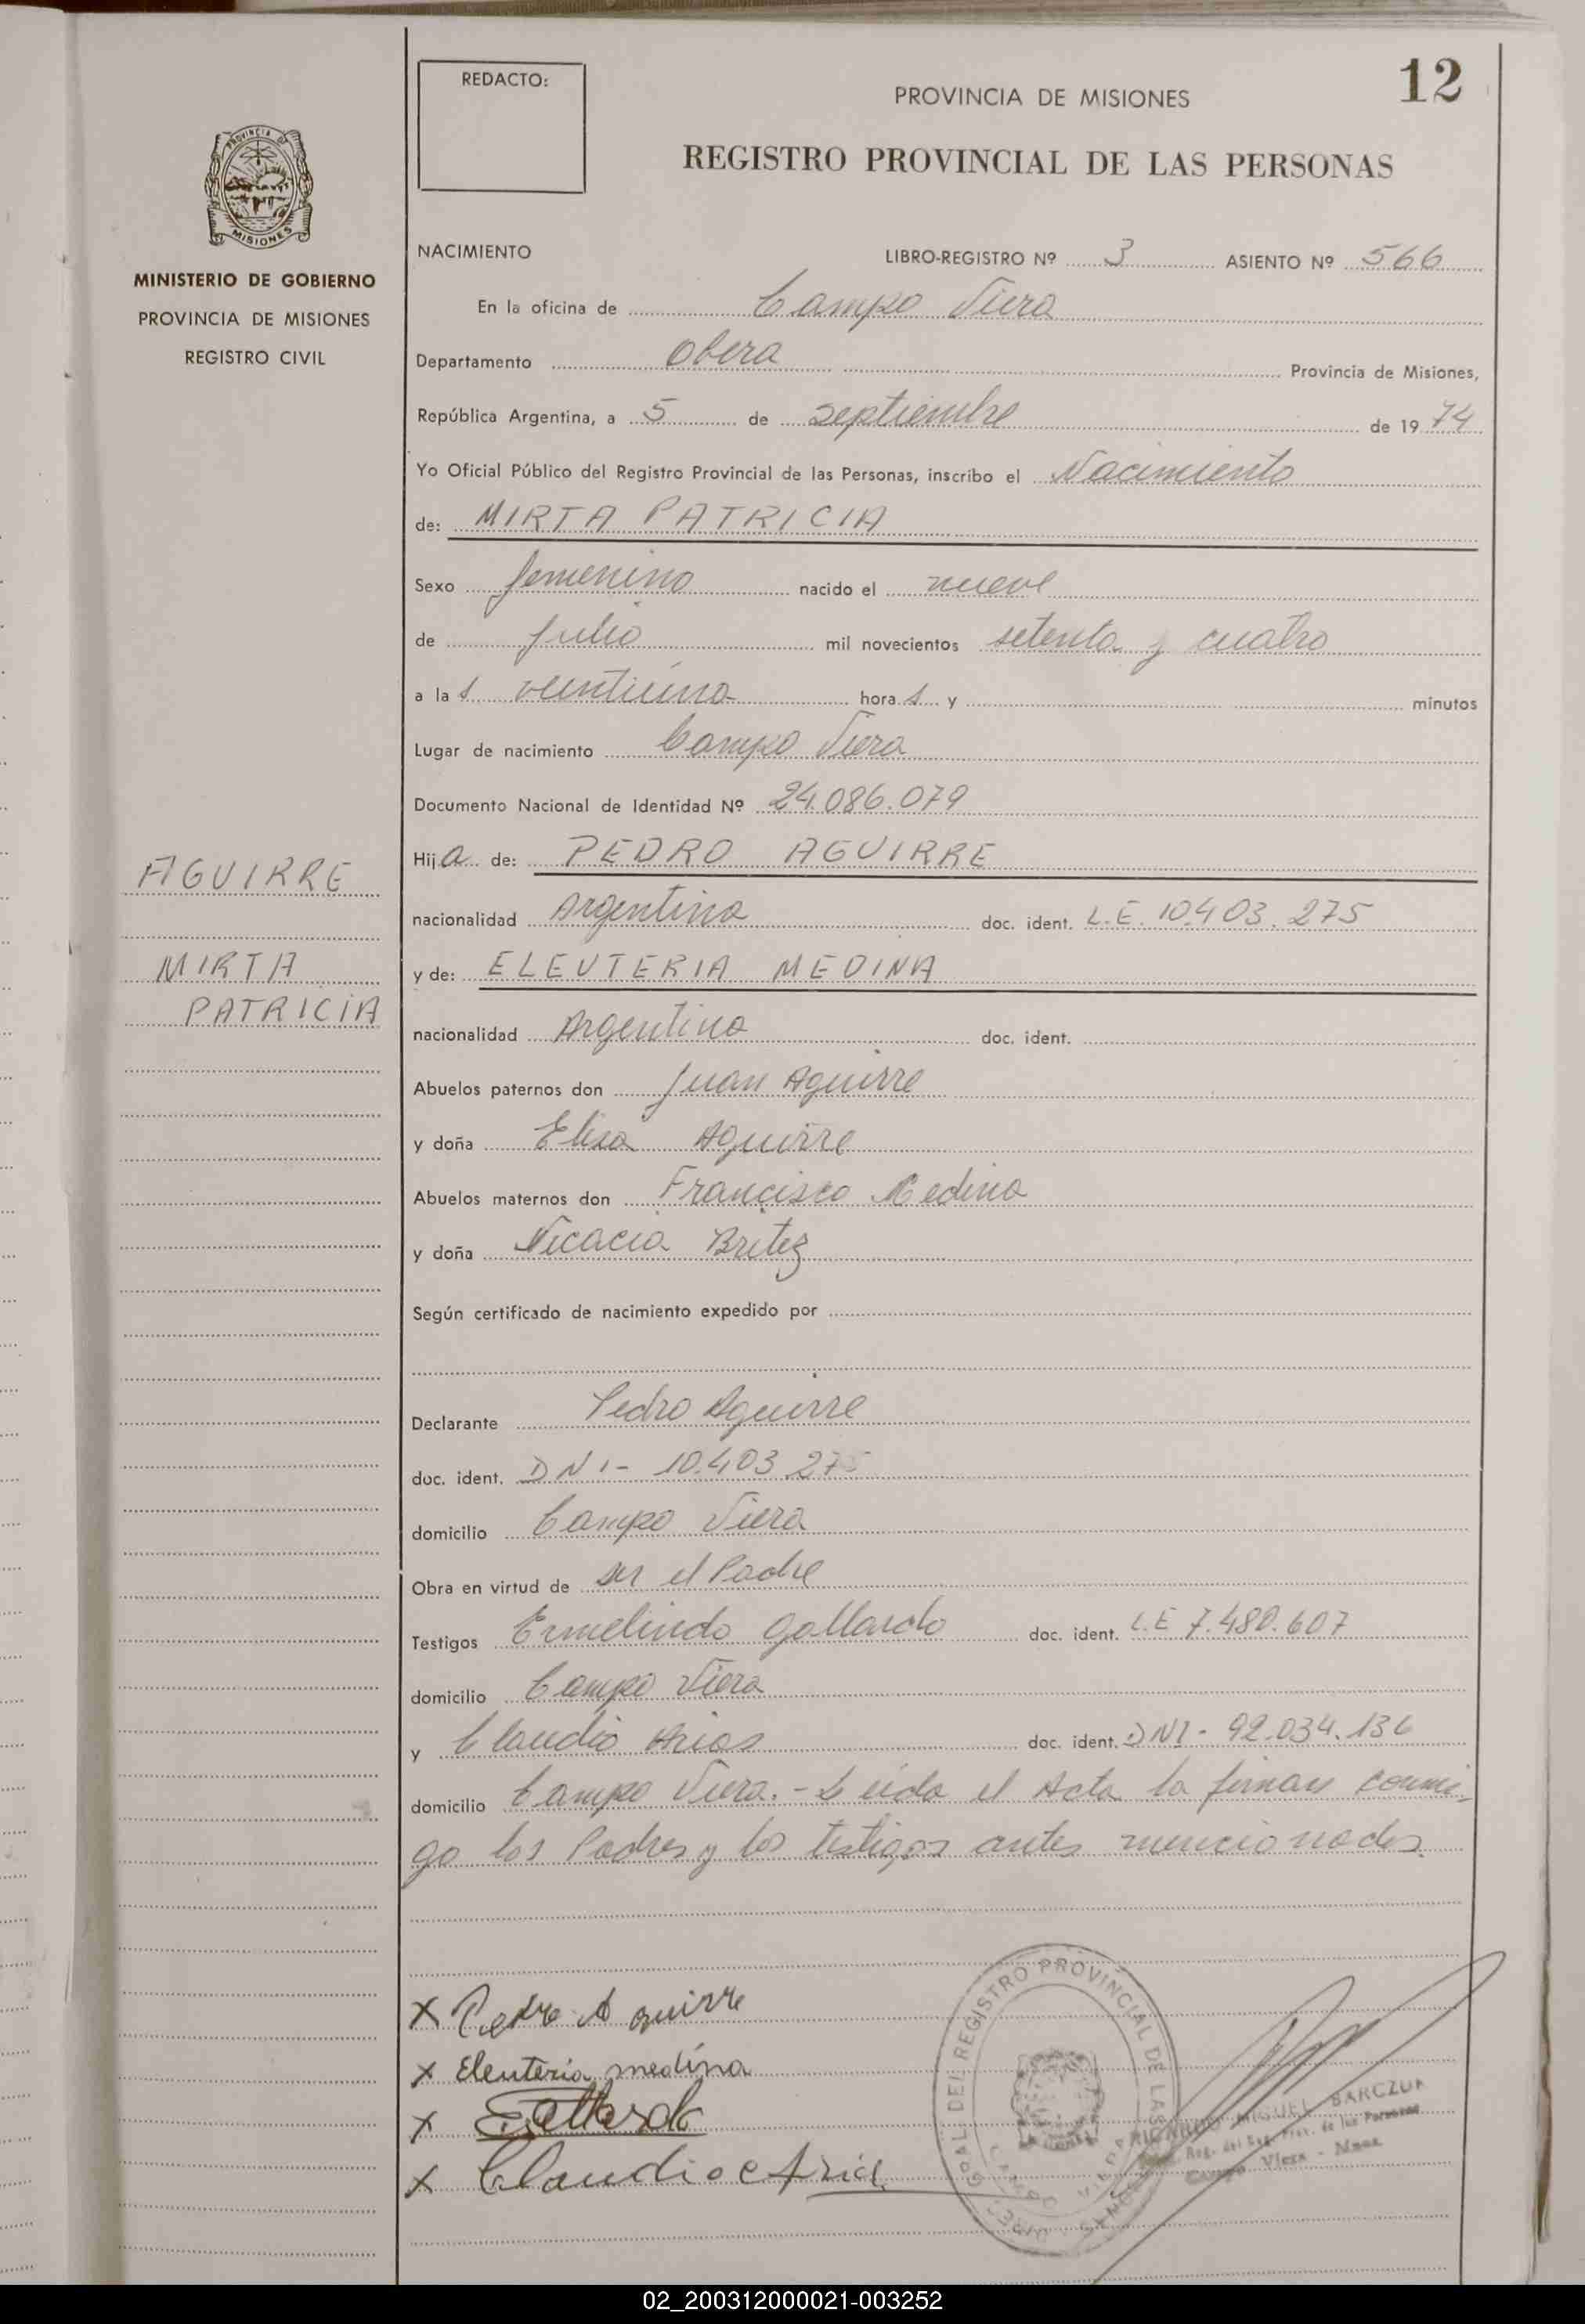 12
REDACTO:
PROVINCIA DE MISIONES
REGISTRO PROVINCIAL DE LAS PERSONAS
PROVINCIA DE
MISIONES
MINISTERIO DE GOBIERNO
PROVINCIA DE MISIONES
REGISTRO CIVIL
NACIMIENTO LIBRO-REGISTRO Nº 3 ASIENTO Nº 566
En la oficina de Campo Viera
Departamento Obera Provincia de Misiones,
República Argentina, a 5 de septiembre de 19 74
Yo Oficial Público del Registro Provincial de las Personas, inscribo el Nacimiento
de: MIRTA PATRICIA
Sexo femenino nacido el nueve
de Julio mil novecientos setenta y cuatro
a la s veintiuna hora s y minutos
Lugar de nacimiento Campo Viera
Documento Nacional de Identidad Nº 24.086.079
Hija de: PEDRO AGUIRRE
AGUIRRE
nacionalidad Argentina doc. ident. L.E. 10.403.275
y de: ELEUTERIA MEDINA
MIRTA
PATRICIA
nacionalidad Argentina doc. ident.
Abuelos paternos don Juan Aguirre
y doña Elisa Aguirre
Abuelos maternos don Francisco Medina
y doña Nicacia Britez
Según certificado de nacimiento expedido por
Declarante Pedro Aguirre
doc. ident. DNI- 10.403.275
domicilio Campo Viera
Obra en virtud de ser el Padre
Testigos Ermelindo Gallardo doc. ident. L.E 7.480.607
domicilio Campo Viera
y Claudio Arias doc. ident. DNI- 92.034.136
domicilio Campo Viera.- Leida el Acta la firman conmi-
go los Padres y los testigos antes mencionados.
X Pedro Aguirre
X Eleuteria medina
X Gallardo
X Claudio Arias
REGISTRO PROVINCIAL DE LAS
CAMPO VIERA
RICARDO MIGUEL BARCZUK
Reg. del Reg. Prov. de las Personas
Campo Viera - Mnes.
02_200312000021-003252